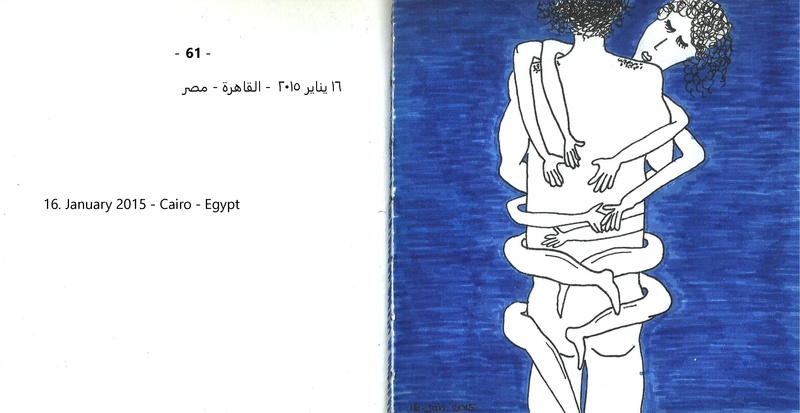 - 61 -
١٦ يناير ٢٠١٥ - القاهرة - مصر
16. January 2015 - Cairo - Egypt
16. Jan. 2015